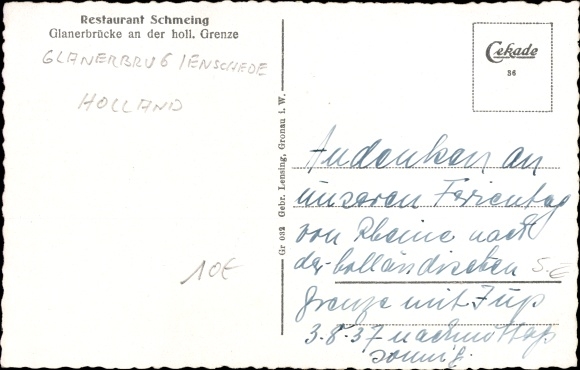 Restaurant Schmeing
Glanerbrücke an der holl. Grenze
GLANERBRUG/ENSCHEDE
HOLLAND
10€
Gr 032 Gebr. Lensing, Gronau i. W.
Cekade
86
Andenken an
unseren Ferientag
von Rheine nach
der holländischen
S.E
Grenze mit
3.8.37 nachmittags
sonnig.